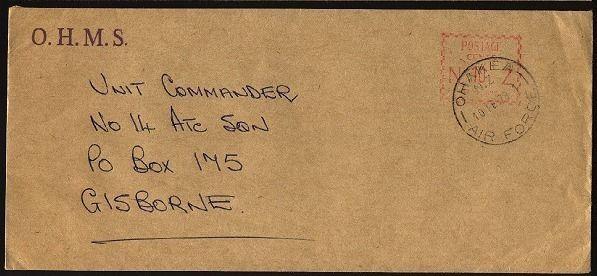 O.H.M.S.
POSTAGE
N Z
OHAKEA
N.Z.
AIR FORCE
UNIT COMMANDER
NO 14 ATC SQN
PO BOX 175
GISBORNE.